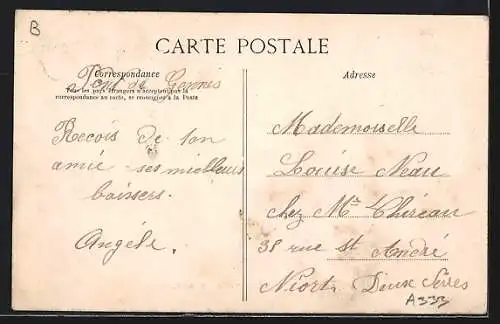 B
CARTE POSTALE
Correspondance
Pont de Gennes
Tous les pays étrangers n'acceptent pas la
correspondance au recto, se renseigner à la Poste
Recois de ton
amie ses meilleurs
baisers.
Angéle.
Adresse
Mademoiselle
Louise Neau
chez Mr Chireau
38 rue st André
Niort Deux Sèvres
A333